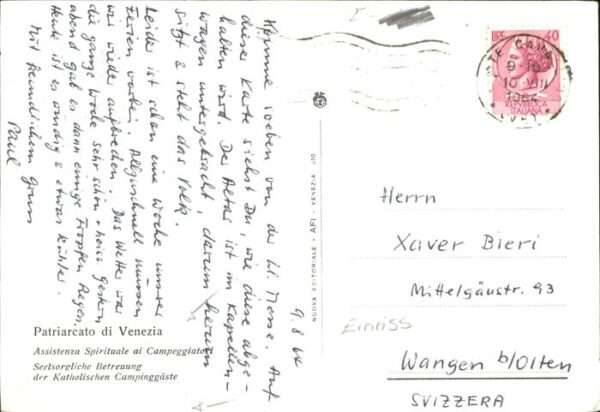 9.8.64
Komme soeben von der hl. Messe. Auf
dieser Karte siehst Du, wie diese abge-
halten wird. Der Altar ist im Kapellen-
wagen untergebracht, darum herum
sitzt & steht das Volk.
Leider ist schon eine Woche unserer
Ferien vorbei. Allzuschnell müssen
wir wieder aufbrechen. Das Wetter war
die ganze Woche sehr schön & heiss gestern
abend gab es dann einige Tropfen Regen.
Heute ist es windig & etwas kühler.
Mit freundlichem Gruss
Paul
Patriarcato di Venezia
Assistenza Spirituale ai Campeggiatori
Seelsorgliche Betreuung
der Katholischen Campinggäste
NUOVA EDITORIALE - AFI - VENEZIA
40
9-10
10 VIII
1964
REPVBBLICA
ITALIANA
Herrn
Xaver Bieri
Mittelgäustr. 93
Einriss
Wangen b/Olten
SVIZZERA